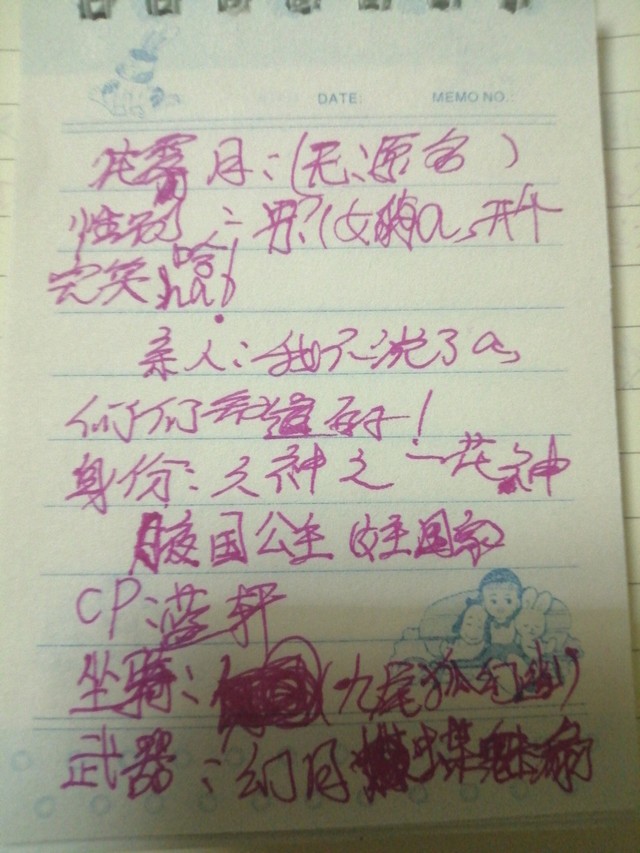 DATE: MEMO NO.:
月:(无源名)
性别:男?(女 a,开个
完笑哈ha!
亲人:我不说了a,
们们知道的!
身份:之神之一花神
夜国公主(女王国家)
CP:蓝轩
坐骑:(九尾狐幻
武器:幻月蝶魅